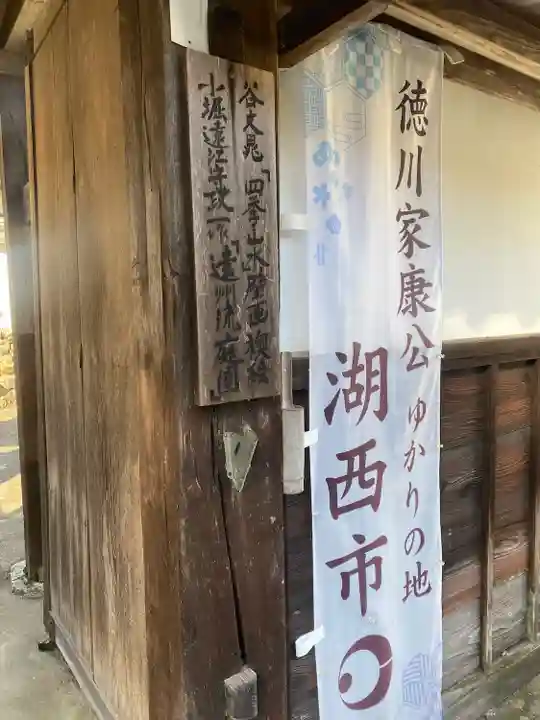 徳川家康公ゆかりの地
湖西市
谷文晁「四季山水壁画襖絵
小堀遠江守政一作「遠州流庭園」